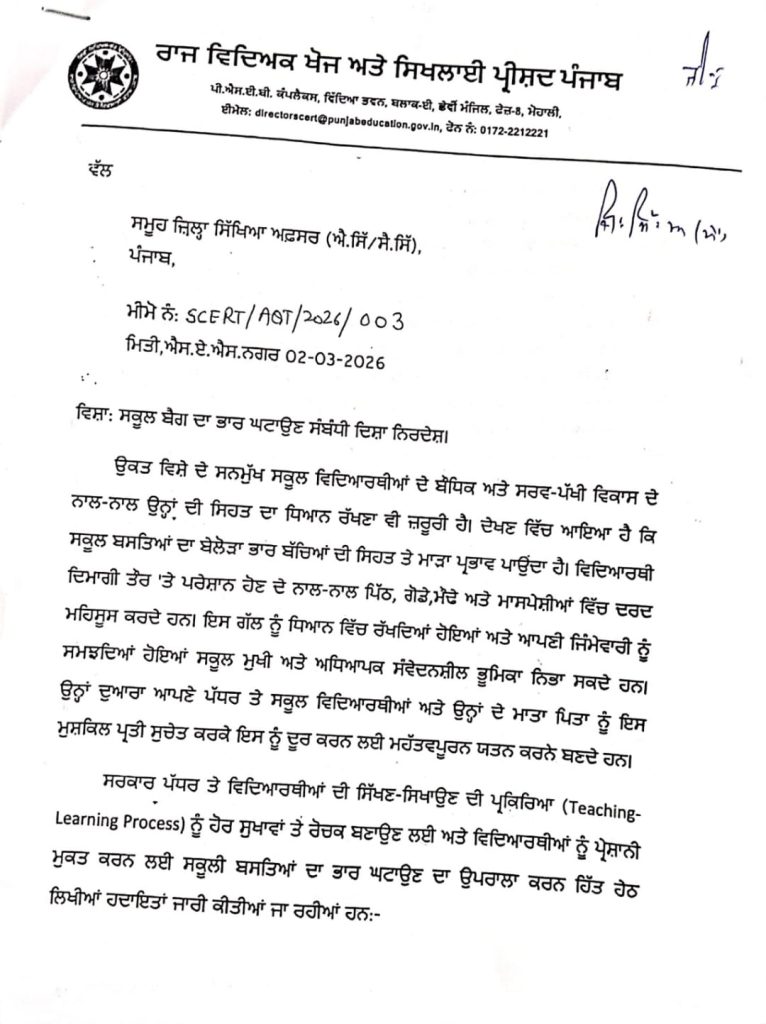 ਰਾਜ ਵਿਦਿਅਕ ਖੋਜ ਅਤੇ ਸਿਖਲਾਈ ਪ੍ਰੀਸ਼ਦ ਪੰਜਾਬ
ਪੀ.ਐਸ.ਈ.ਬੀ. ਕੰਪਲੈਕਸ, ਵਿੱਦਿਆ ਭਵਨ, ਬਲਾਕ-ਈ, ਛੇਵੀਂ ਮੰਜਿਲ, ਫੇਜ਼-8, ਮੋਹਾਲੀ,
ਈਮੇਲ: directorscert@punjabeducation.gov.in, ਫੋਨ ਨੰ: 0172-2212221
ਵੱਲ
ਸਮੂਹ ਜ਼ਿਲ੍ਹਾ ਸਿੱਖਿਆ ਅਫ਼ਸਰ (ਐ.ਸਿੱ/ਸੈ.ਸਿੱ),
ਪੰਜਾਬ,
ਮੀਮੋ ਨੰ: SCERT/AQT/2026/003
ਮਿਤੀ,ਐਸ.ਏ.ਐਸ.ਨਗਰ 02-03-2026
ਵਿਸ਼ਾ: ਸਕੂਲ ਬੈਗ ਦਾ ਭਾਰ ਘਟਾਉਣ ਸੰਬੰਧੀ ਦਿਸ਼ਾ ਨਿਰਦੇਸ਼।
ਉਕਤ ਵਿਸ਼ੇ ਦੇ ਸਨਮੁੱਖ ਸਕੂਲ ਵਿਦਿਆਰਥੀਆਂ ਦੇ ਬੌਧਿਕ ਅਤੇ ਸਰਵ-ਪੱਖੀ ਵਿਕਾਸ ਦੇ
ਨਾਲ-ਨਾਲ ਉਨ੍ਹਾਂ ਦੀ ਸਿਹਤ ਦਾ ਧਿਆਨ ਰੱਖਣਾ ਵੀ ਜ਼ਰੂਰੀ ਹੈ। ਦੇਖਣ ਵਿੱਚ ਆਇਆ ਹੈ ਕਿ
ਸਕੂਲ ਬਸਤਿਆਂ ਦਾ ਬੇਲੋੜਾ ਭਾਰ ਬੱਚਿਆਂ ਦੀ ਸਿਹਤ ਤੇ ਮਾੜਾ ਪ੍ਰਭਾਵ ਪਾਉਂਦਾ ਹੈ। ਵਿਦਿਆਰਥੀ
ਦਿਮਾਗੀ ਤੌਰ 'ਤੇ ਪਰੇਸ਼ਾਨ ਹੋਣ ਦੇ ਨਾਲ-ਨਾਲ ਪਿੱਠ, ਗੋਡੇ,ਮੋਢੇ ਅਤੇ ਮਾਸਪੇਸ਼ੀਆਂ ਵਿੱਚ ਦਰਦ
ਮਹਿਸੂਸ ਕਰਦੇ ਹਨ। ਇਸ ਗੱਲ ਨੂੰ ਧਿਆਨ ਵਿੱਚ ਰੱਖਦਿਆਂ ਹੋਇਆਂ ਅਤੇ ਆਪਣੀ ਜਿੰਮੇਵਾਰੀ ਨੂੰ
ਸਮਝਦਿਆਂ ਹੋਇਆਂ ਸਕੂਲ ਮੁਖੀ ਅਤੇ ਅਧਿਆਪਕ ਸੰਵੇਦਨਸ਼ੀਲ ਭੂਮਿਕਾ ਨਿਭਾ ਸਕਦੇ ਹਨ।
ਉਨ੍ਹਾਂ ਦੁਆਰਾ ਆਪਣੇ ਪੱਧਰ ਤੇ ਸਕੂਲ ਵਿਦਿਆਰਥੀਆਂ ਅਤੇ ਉਨ੍ਹਾਂ ਦੇ ਮਾਤਾ ਪਿਤਾ ਨੂੰ ਇਸ
ਮੁਸ਼ਕਿਲ ਪ੍ਰਤੀ ਸੁਚੇਤ ਕਰਕੇ ਇਸ ਨੂੰ ਦੂਰ ਕਰਨ ਲਈ ਮਹੱਤਵਪੂਰਨ ਯਤਨ ਕਰਨੇ ਬਣਦੇ ਹਨ।
ਸਰਕਾਰ ਪੱਧਰ ਤੇ ਵਿਦਿਆਰਥੀਆਂ ਦੀ ਸਿੱਖਣ-ਸਿਖਾਉਣ ਦੀ ਪ੍ਰਕਿਰਿਆ (Teaching-
Learning Process) ਨੂੰ ਹੋਰ ਸੁਖਾਵਾਂ ਤੇ ਰੋਚਕ ਬਣਾਉਣ ਲਈ ਅਤੇ ਵਿਦਿਆਰਥੀਆਂ ਨੂੰ ਪ੍ਰੇਸ਼ਾਨੀ
ਮੁਕਤ ਕਰਨ ਲਈ ਸਕੂਲੀ ਬਸਤਿਆਂ ਦਾ ਭਾਰ ਘਟਾਉਣ ਦਾ ਉਪਰਾਲਾ ਕਰਨ ਹਿੱਤ ਹੇਠ
ਲਿਖੀਆਂ ਹਦਾਇਤਾਂ ਜਾਰੀ ਕੀਤੀਆਂ ਜਾ ਰਹੀਆਂ ਹਨ:-